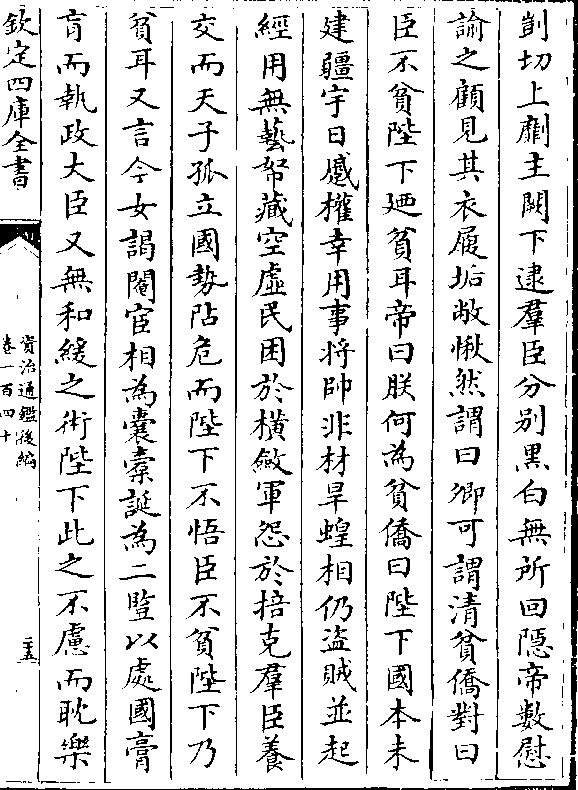 剴切上劘主闕下逮羣臣分别黑白無所回隠帝數慰
諭之顧見其衣履垢敝愀然謂曰卿可謂清貧僑對曰
臣不貧陛下廼貧耳帝曰朕何為貧僑曰陛下國本未
建疆宇日蹙權幸用事將帥非材旱蝗相仍盗賊並起
經用無藝帑藏空虛民困於横斂軍怨於掊克羣臣養
交而天子孤立國勢阽危而陛下不悟臣不貧陛下乃
貧耳又言今女謁閹宦相為囊槖誕為二豎以處國膏
肓而執政大臣又無和緩之術陛下此之不慮而耽樂
欽定四庫全書
資治通鑑後編
卷一百四十
二五